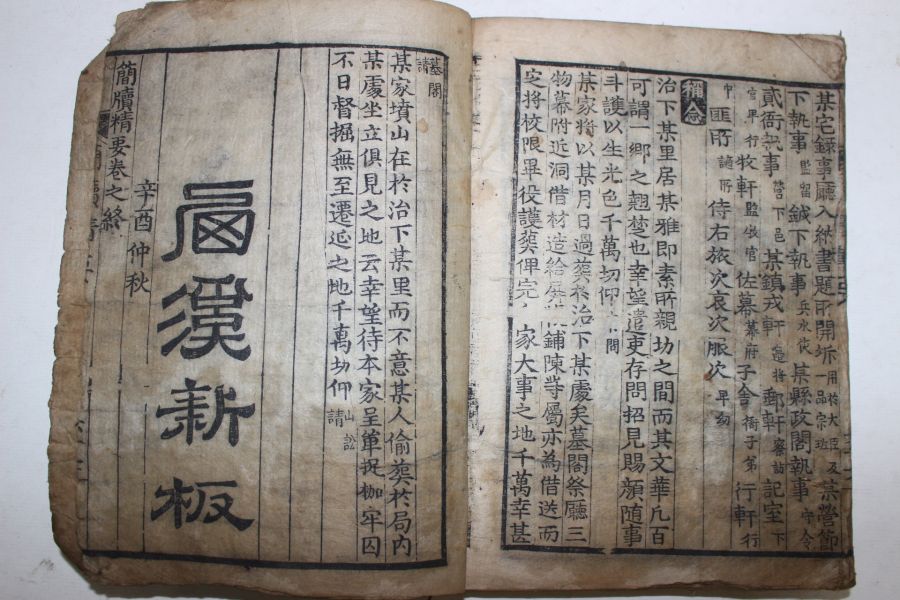 某宅錄事廳入納書題所開坼一品宗班用於大臣及某營節
下執事監留鍼下執事兵水使某縣政閣執事守令
貳衙執事營下邑某鎭戎軒邊將郵軒察訪記室下
官平行牧軒監牧官佐幕幕府子舍衙子弟行軒行
中匪所謫所侍右旅次哀次服次早幼
稱念
治下某里居某雅即素所親切之間而其文華凡百
可謂一鄕之翹楚也幸望遣吏存問招見賜顔隨事
斗護以生光色千萬切仰問
某家將以某月日過葬於治下某處矣墓閣祭廳三
物幕附近洞借材造給鋪陳等屬亦爲借送而
定將校限畢役護葬俾完家大事之地千萬幸甚
墓閣請
某家墳山在於治下某里而不意某人偷葬於局內
某處坐立俱見之地云幸望待本家呈單捉枷牢囚
不日督掘無至遷延之地千萬切仰山訟請
新板
辛酉仲秋
簡牘精要卷之終